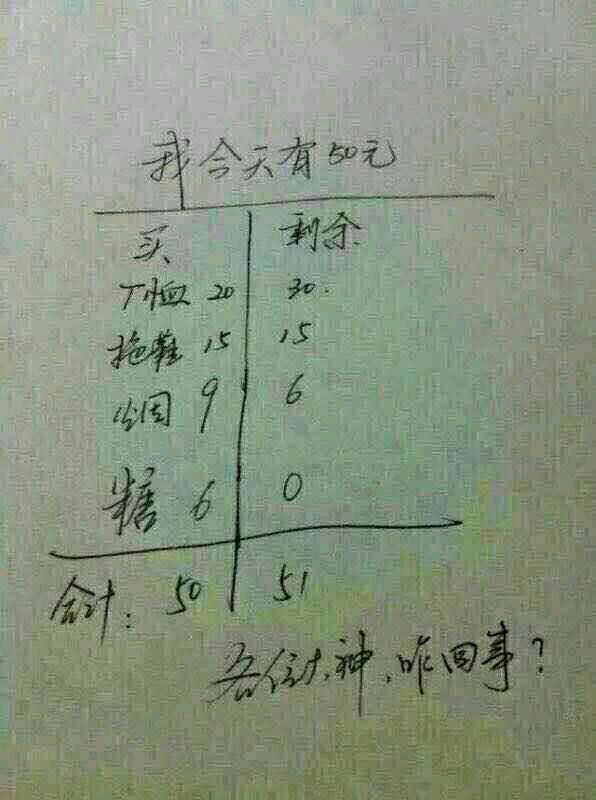 我今天有50元
买 剩余
T恤 20 30.
拖鞋 15 15
烟 9 6
糖 6 0
合计: 50 51
各位大神,咋回事?